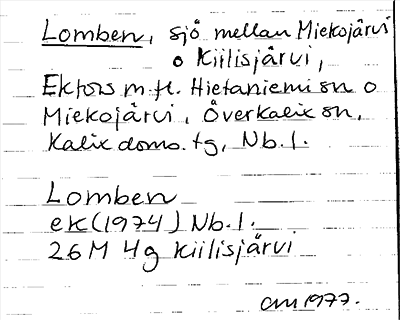 Lomben, sjö mellan Miekojärvi
o Kiilisjärvi,
Ektors m.fl. Hietaniemi sn o
Miekojärvi, Överkalix sn,
Kalix doms. tg, Nb.l.
Lomben
ek (1974) Nb.l.
26M 4g Kiilisjärvi
1977.